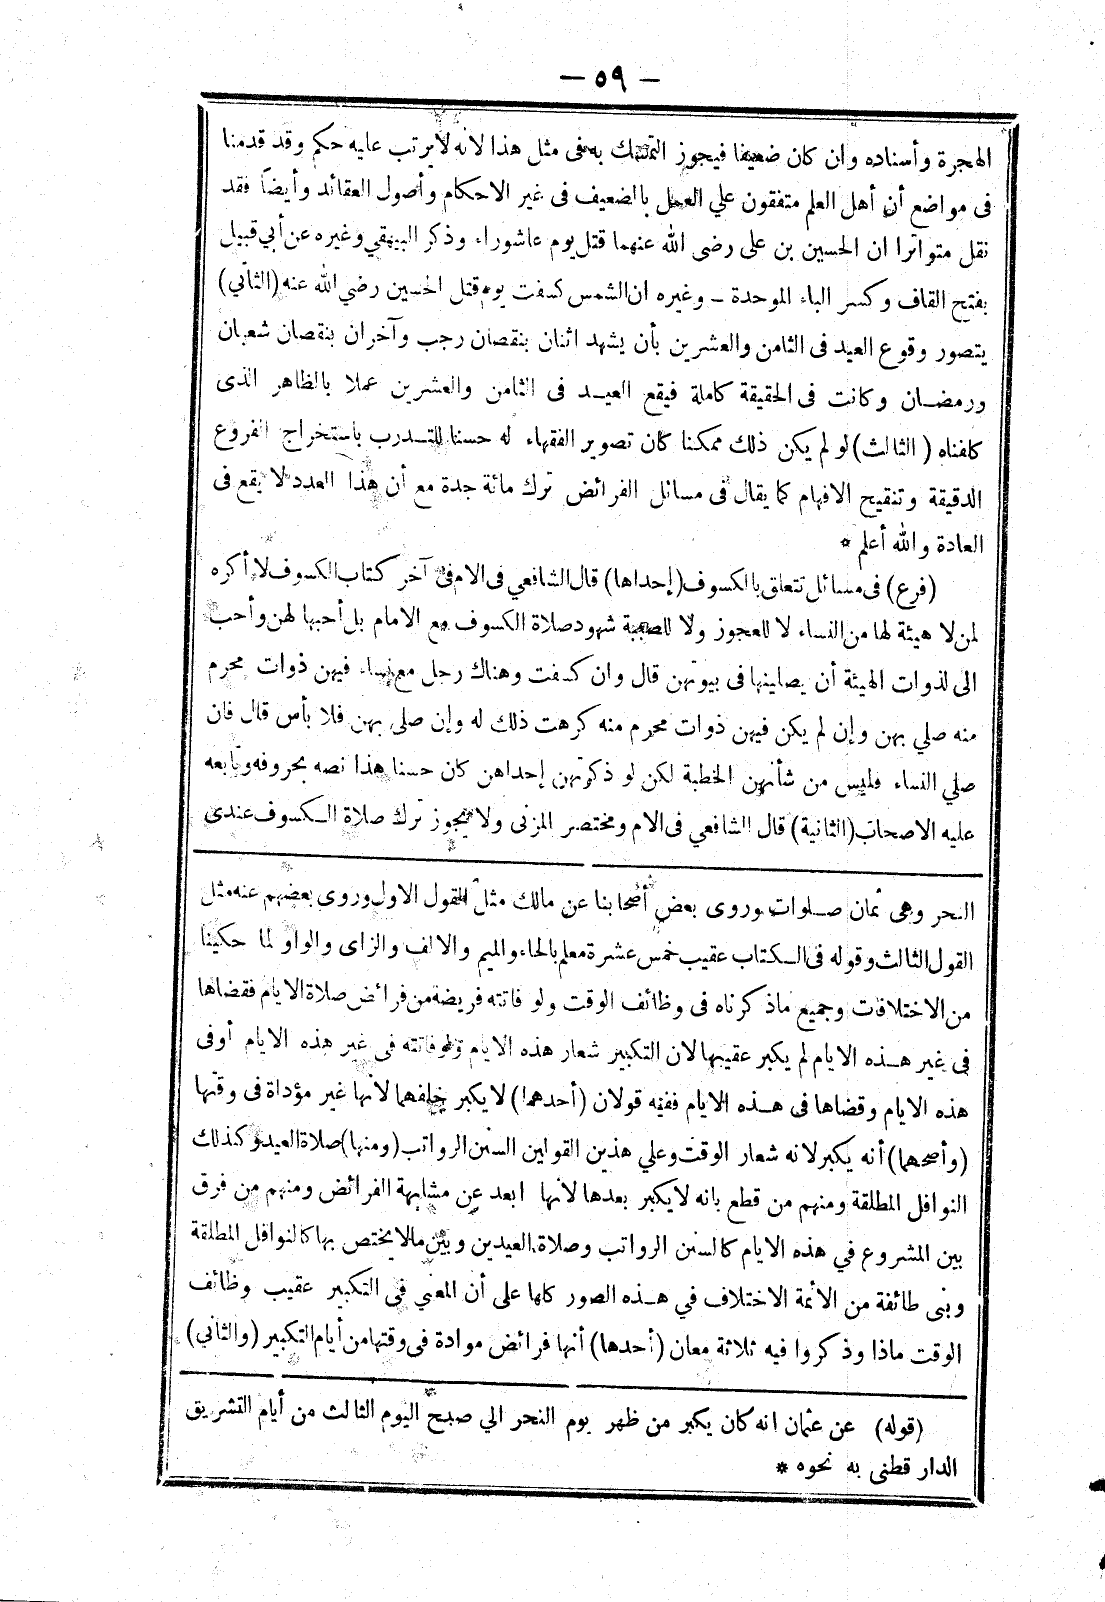 — ٥٩ —
الهجرة وأسناده وان كان ضعيفا فيجوز التمسك به فى مثل هذا لانه لا يرتب عليه حكم وقد قدمنا
فى مواضع أن أهل العلم متفقون علي العمل بالضعيف فى غير الاحكام وأصول العقائد وأيضاً فقد
نقل متواترا ان الحسين بن على رضى الله عنهما قتل يوم عاشوراء وذكر البيهقي وغيره عن أبي قبيل
بفتح القاف وكسر الباء الموحدة - وغيره ان الشمس كسفت يوم قتل الحسين رضي الله عنه (الثاني)
يتصور وقوع العيد فى الثامن والعشرين بأن يشهد اثنان بنقصان رجب وآخران بنقصان شعبان
ورمضـان وكانت فى الحقيقة كاملة فيقع العيـد فى الثامن والعشرين عملا بالظاهر الذى
كلفناه (الثالث) لو لم يكن ذلك ممكنا كان تصوير الفقهاء له حسنا للتـدرب باستخراج الفروع
الدقيقة وتنقيح الافهام كما يقال فى مسائل الفرائض ترك مائة جدة مع أن هذا العدد لا يقع فى
العادة والله أعلم *
(فرع) فى مسائل تتعلق بالكسوف (إحداها) قال الشافعي فى الام فى آخر كتاب الكسوف لا أكره
لمن لا هيئة لها من النساء لا للعجوز ولا للصبية شهود صلاة الكسوف مع الامام بل أحبها لهن وأحب
الى لذوات الهيئة أن يصلينها فى بيوتهن قال وان كسفت وهناك رجل مع نساء فيهن ذوات محرم
منه صلي بهن وإن لم يكن فيهن ذوات محرم منه كرهت ذلك له وإن صلى بهن فلا بأس قال فان
صلي النساء فليس من شأنهن الخطبة لكن لو ذكرتهن إحداهن كان حسنا هذا نصه بحروفه وتابعه
عليه الاصحاب (الثانية) قال الشافعي فى الام ومختصر المزنى ولا يجوز ترك صلاة الـكسوف عندى
النحر وهى ثمان صـلوات وروى بعض أصحابنا عن مالك مثل القول الاول وروى بعضهم عنه مثل
القول الثالث وقوله فى الـكتاب عقيب خمس عشرة معلم بالحاء والميم والالف والزاى والواو لما حكينا
من الاختلافات وجميع ماذكرناه فى وظائف الوقت ولو فاتته فريضة من فرائض صلاة الايام فقضاها
فى غير هـذه الايام لم يكبر عقيبها لان التكبير شعار هذه الايام ولو فاتته فى غير هذه الايام أو فى
هذه الايام وقضاها فى هـذه الايام ففيه قولان (أحدهما) لا يكبر خلفهما لأنها غير مؤداة فى وقتها
(وأصحهما) أنه يكبر لانه شعار الوقت وعلي هذين القولين السنن الرواتب (ومنها) صلاة العيد وكذلك
النوافل المطلقة ومنهم من قطع بانه لا يكبر بعدها لأنها ابعد عن مشابهة الفرائض ومنهم من فرق
بين المشروع في هذه الايام كالسنن الرواتب وصلاة العيدين وبين مالا يختص بها كالنوافل المطلقة
وبنى طائفة من الأئمة الاختلاف في هـذه الصور كلها على أن المعني فى التكبير عقيب وظائف
الوقت ماذا وذكروا فيه ثلاثة معان (أحدها) أنها فرائض موادة فى وقتها من أيام التكبير (والثاني)
(قوله) عن عثمان انه كان يكبر من ظهر يوم النحر الي صبح اليوم الثالث من أيام التشريق
الدار قطنى به نحوه *